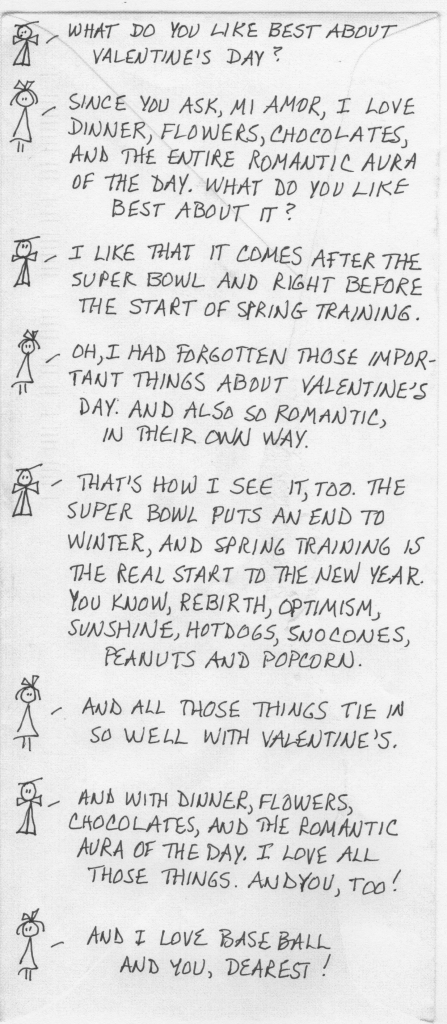 WHAT DO YOU LIKE BEST ABOUT
VALENTINE'S DAY?
SINCE YOU ASK, MI AMOR, I LOVE
DINNER, FLOWERS, CHOCOLATES,
AND THE ENTIRE ROMANTIC AURA
OF THE DAY. WHAT DO YOU LIKE
BEST ABOUT IT?
I LIKE THAT IT COMES AFTER THE
SUPER BOWL AND RIGHT BEFORE
THE START OF SPRING TRAINING.
OH, I HAD FORGOTTEN THOSE IMPOR-
TANT THINGS ABOUT VALENTINE'S
DAY. AND ALSO SO ROMANTIC,
IN THEIR OWN WAY.
THAT'S HOW I SEE IT, TOO. THE
SUPER BOWL PUTS AN END TO
WINTER, AND SPRING TRAINING IS
THE REAL START TO THE NEW YEAR.
YOU KNOW, REBIRTH, OPTIMISM,
SUNSHINE, HOTDOGS, SNOCONES,
PEANUTS AND POPCORN.
AND ALL THOSE THINGS TIE IN
SO WELL WITH VALENTINE'S.
AND WITH DINNER, FLOWERS,
CHOCOLATES, AND THE ROMANTIC
AURA OF THE DAY. I LOVE ALL
THOSE THINGS. AND YOU, TOO!
AND I LOVE BASEBALL
AND YOU, DEAREST!